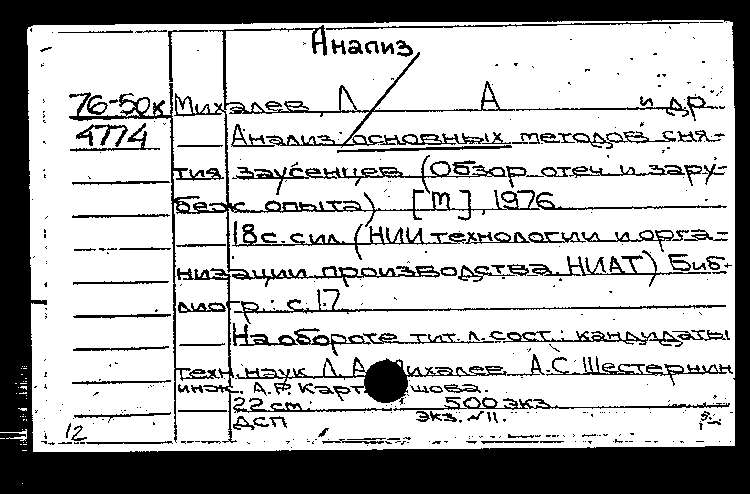 Анализ
76-50к Михалев, Л А и др
4774 Анализ основных методов сня-
тия заусенцев (Обзор отеч и зару-
беж опыта) [М], 1976.
18 с. с ил. (НИИ технологии и орга-
низации производства. НИАТ) Биб-
лиогр.: с. 17
На обороте тит. л. сост.: кандидаты
техн. наук Л. А. Михалев А.С. Шестернин
инж. А.Р.
22 см. 500 экз.
ДСП экз. №11.
12